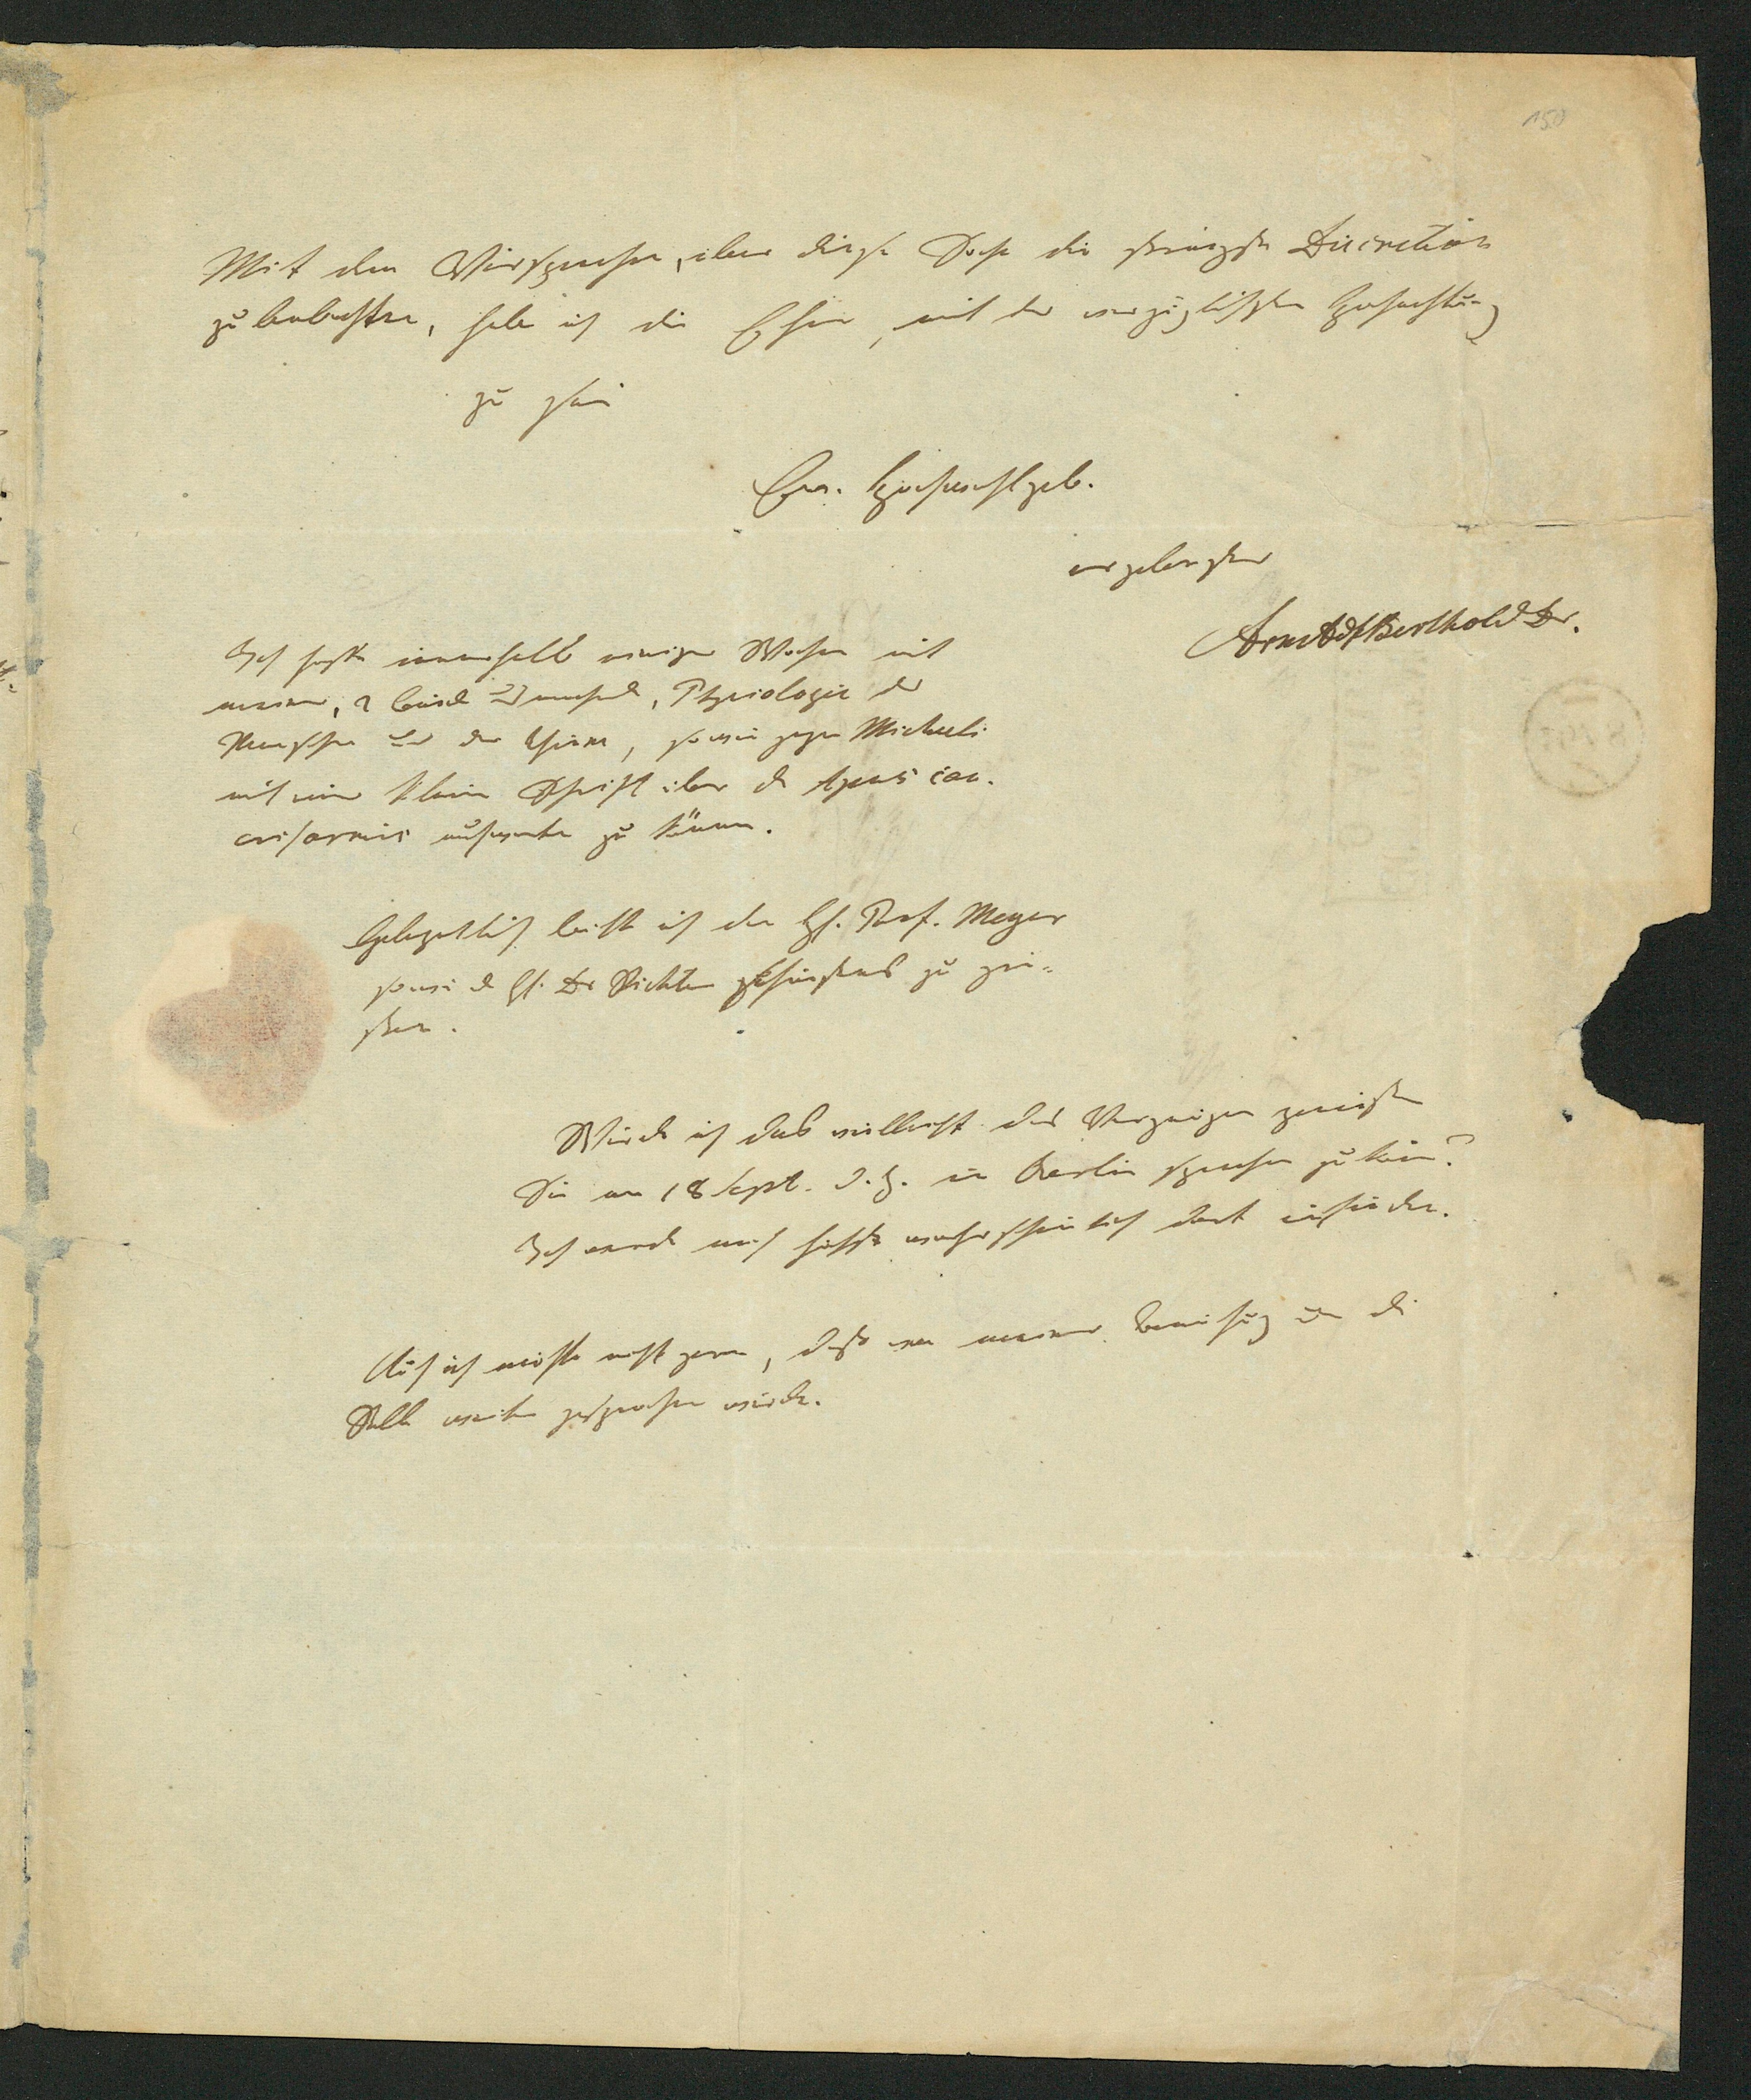 150
Mit dem Versprechen, über diese Sache die strengste Discretion
zu beobachten, habe ich die Ehre, mit der vorzüglichsten Hochachtung
zu sein
Ew. Hochwohlgeb.
ergebenster
Arn Adf Berthold Dr.
Ich hoffe innerhalb einiger Wochen mit
meiner, 2 Bände, Physiologie der
Menschen und der Thiere, sowie gegen Michaeli
mit einer kleinen Schrift über den Apus can-
criformis aufwarten zu können.
Gelegentlich bitte ich den H. Prof. Meyer
sowie den H. Dr Richter gehorsamst zu grü-
ßen.
Würde ich das vielleicht das Vergnügen genießen
Sie am 18 Sept. d. J. in Berlin sprechen zu können?
Ich werde mich höchst wahrscheinlich dort einfinden.
Auch ich möchte nicht gern, daß von meiner Bemühung um die
Stelle weiter gesprochen würde.